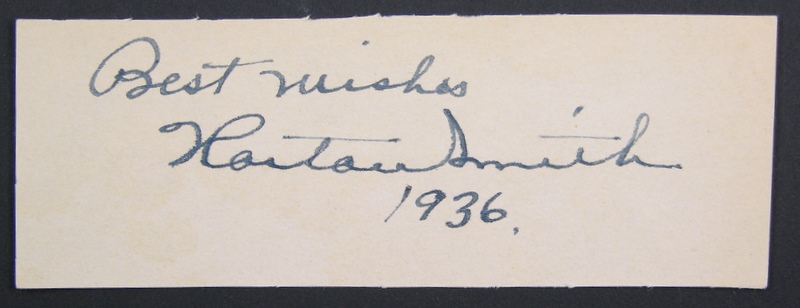 Best wishes
Horton Smith
1936.